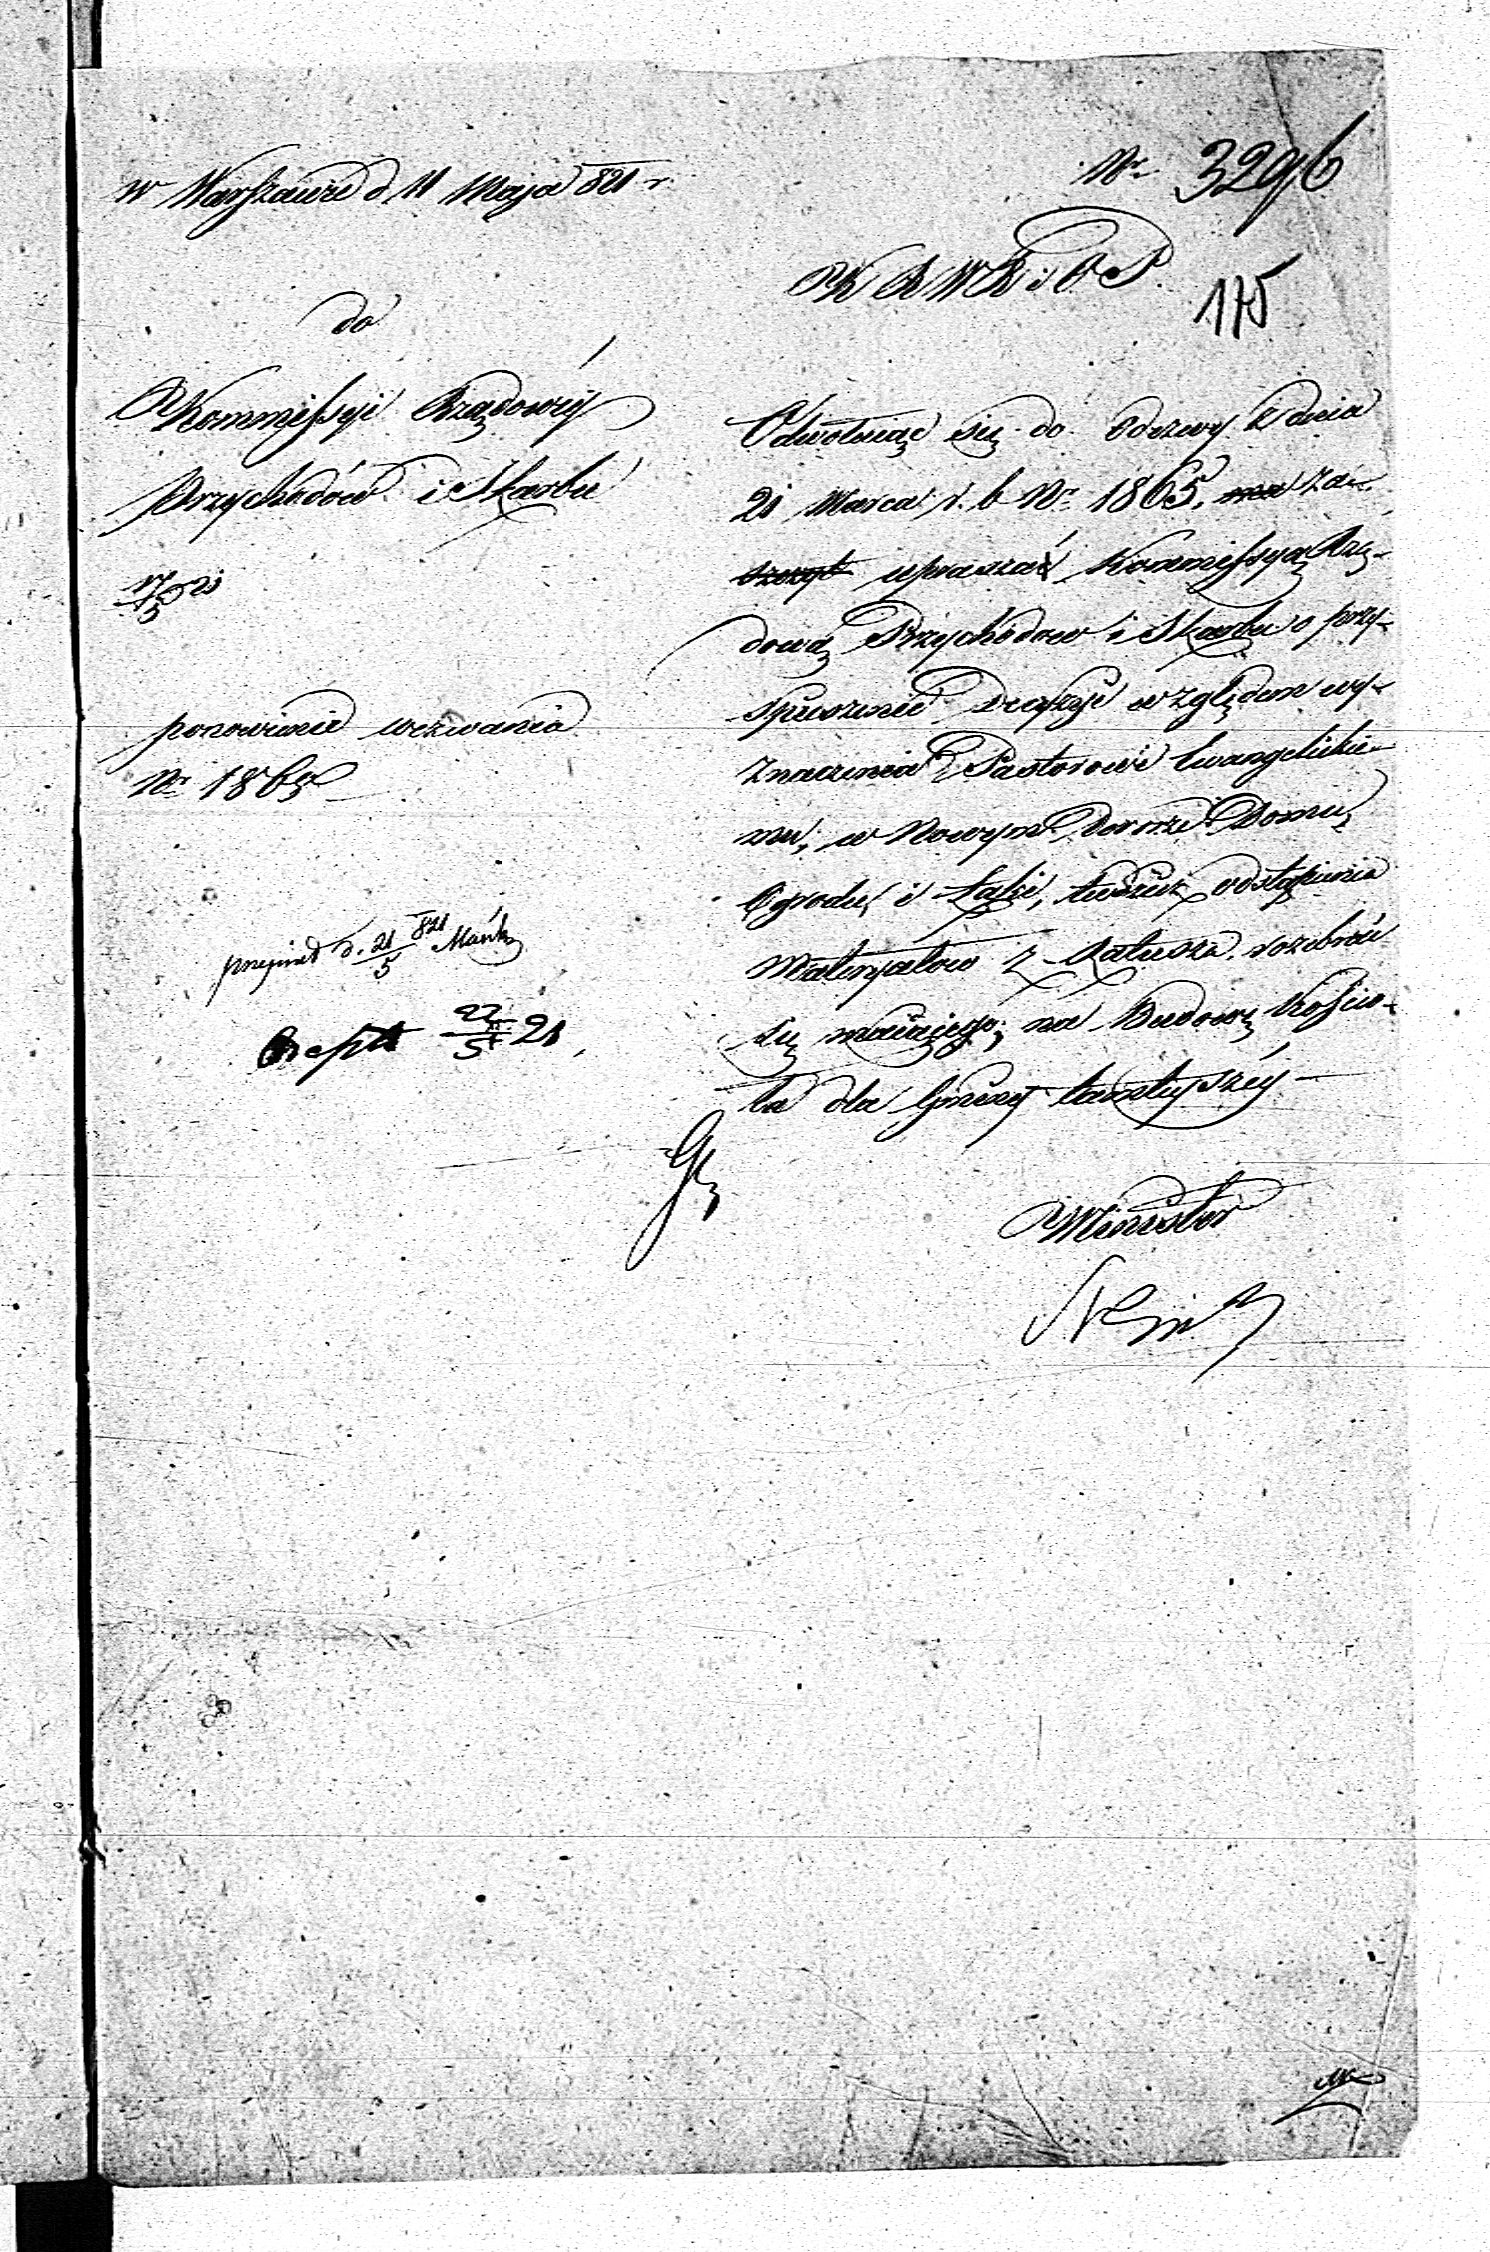 w Warszawie d 11 Maja 821 r.
Nr 3296
K R W R i O P.
175
do
Kommissyi Rządowéy
Przychodów i Skarbu
17/5 21
ponowienie wezwania
Nr 1865
przyjąłd d. 21/5 821
Exept 22/5 21
Odwołuiąc się do Odezwy z dnia
21 Marca r. b. Nr 1865. ma za-
szczyt upraszać Kommissyą Rzą-
dową Przychodow i Skarbu o przy-
spieszenie Decyzyi względem wy-
znaczenia Pastorowi Ewangelickie-
mu, w Nowym Dworze Domu,
Ogrodu, i Łąki, tudzież odstąpienia
Materyałow z Ratusza rozebrać
się maiącego, na Budowę Kościo-
ła dla Gminy tamtuyszéy
Minister